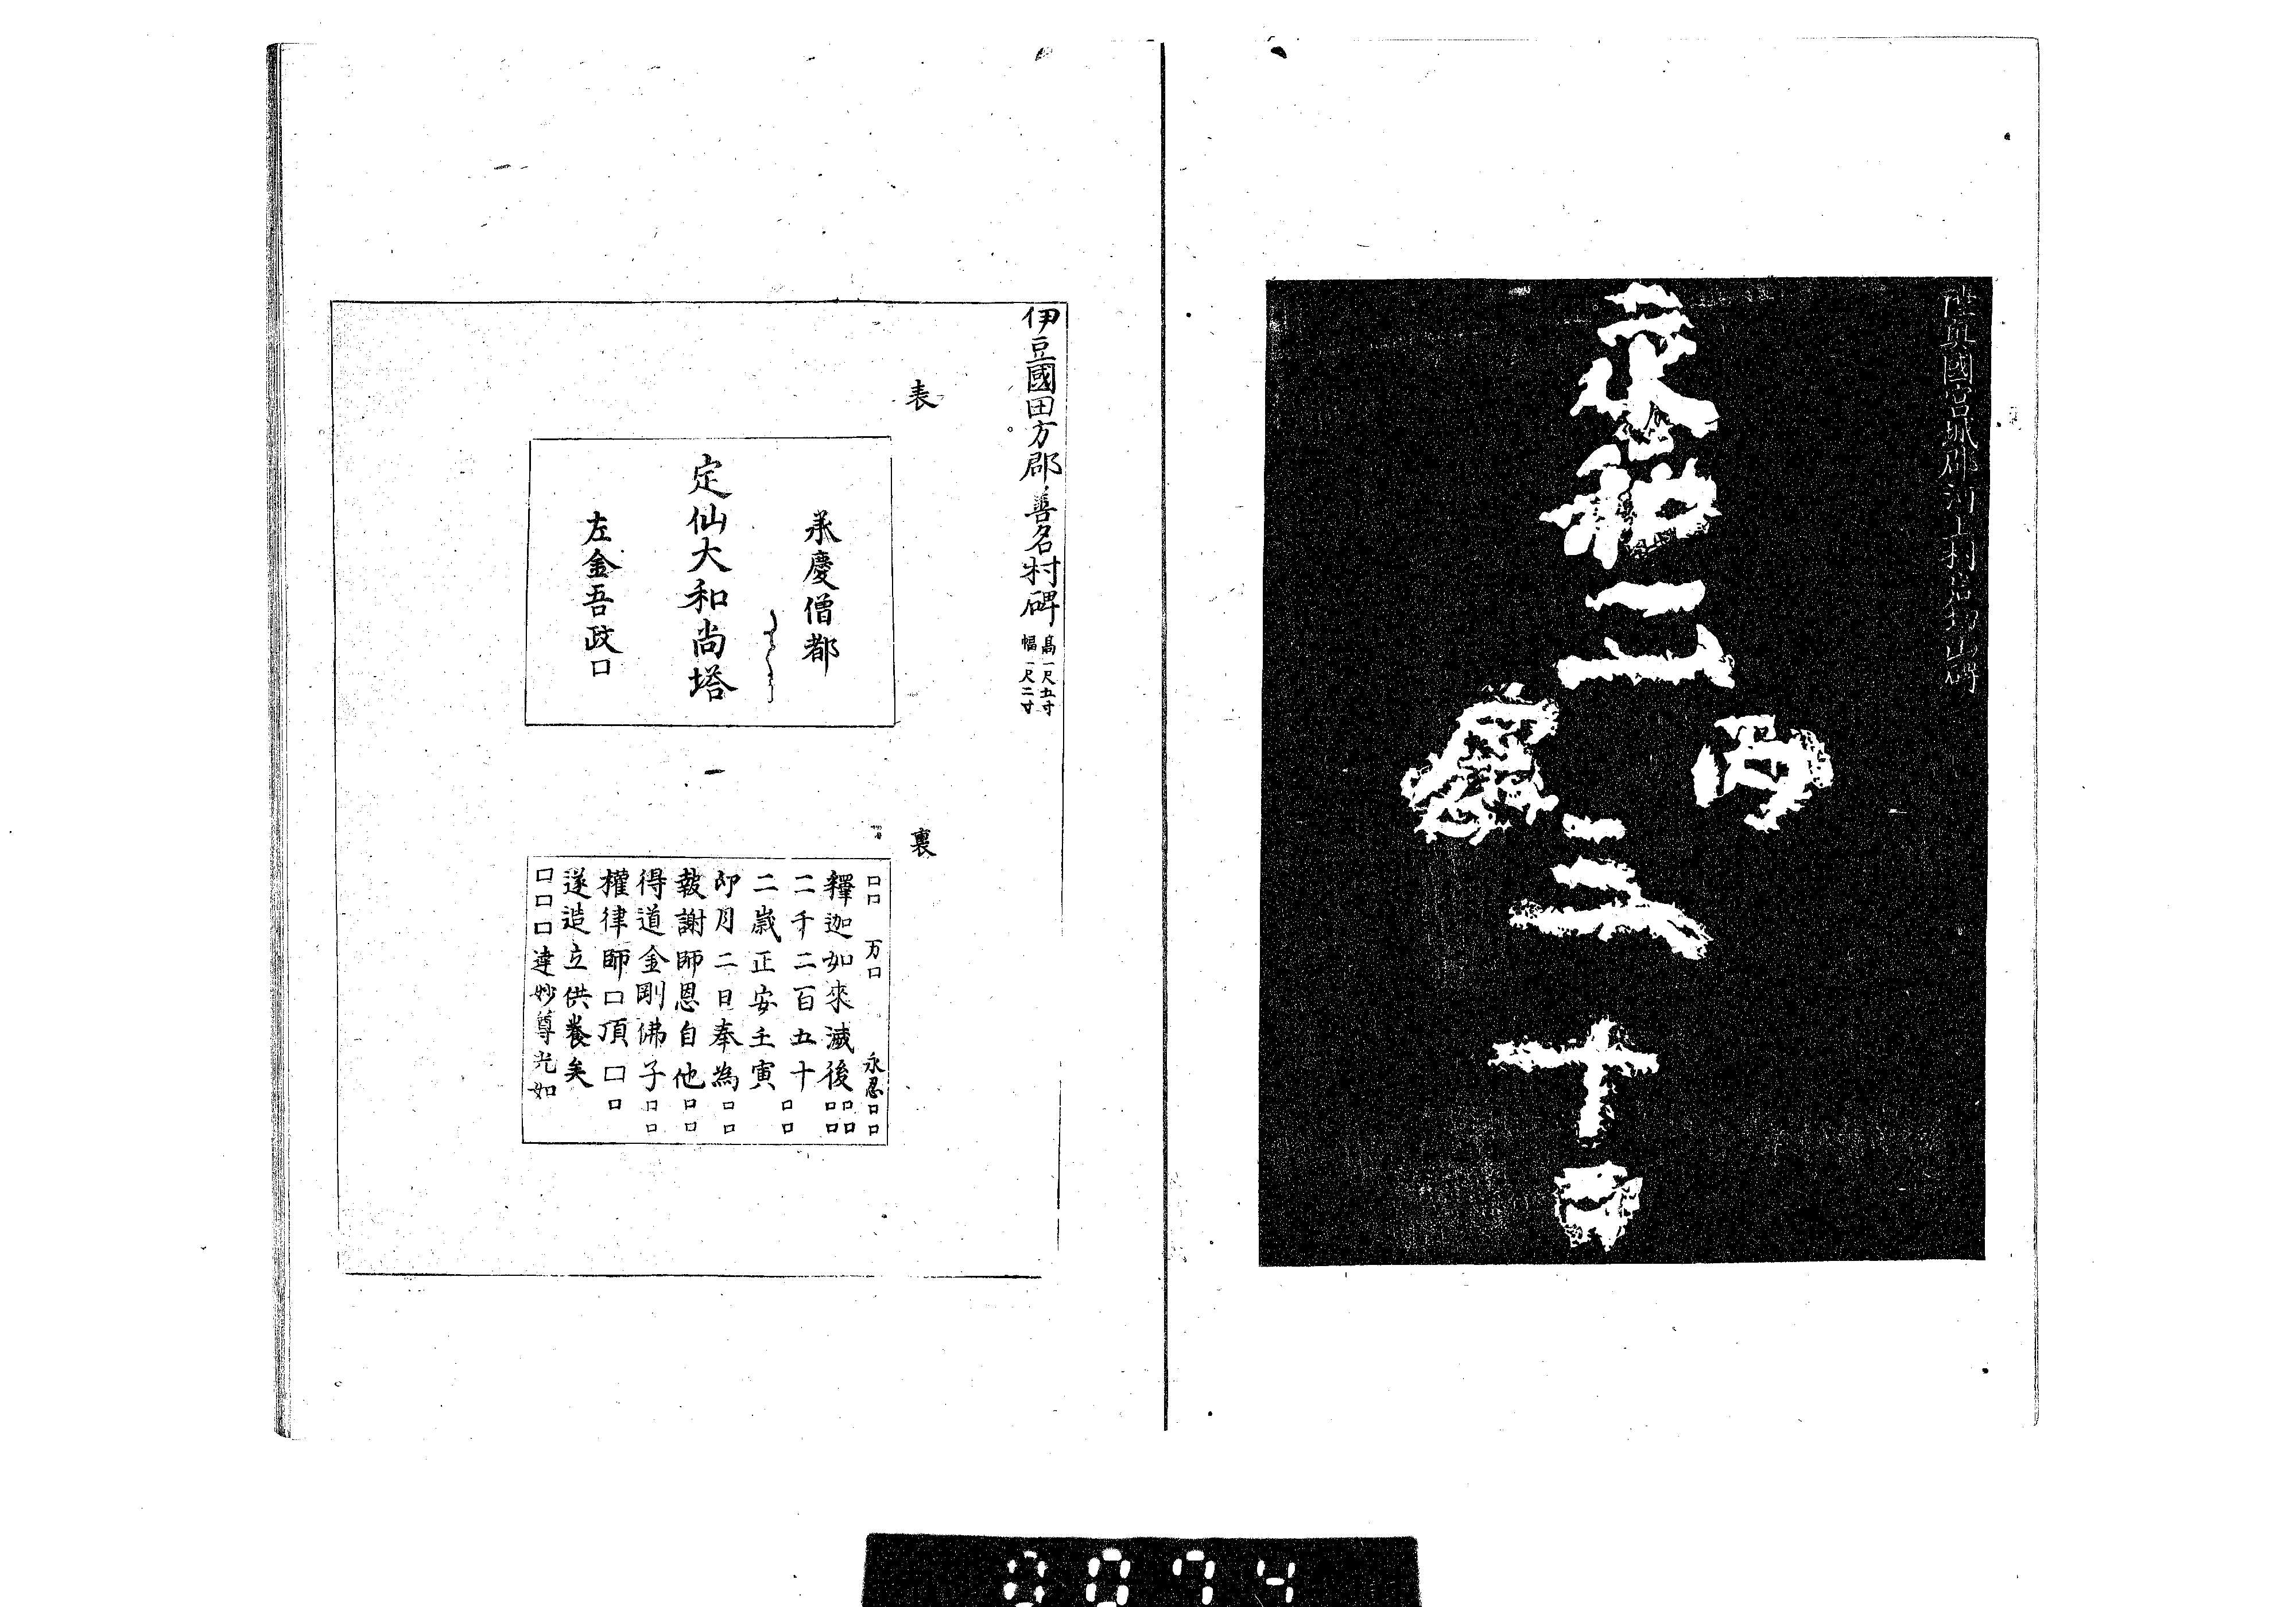 陸奥國宮城郡河上村岩切山碑
二
十
伊豆國田方郡善名村碑
高一尺五寸
幅一尺二寸
表
承慶僧都
定仙大和尚塔
左金吾政口
裏
口口 万口 永忍口口
釋迦如來滅後口口口口
二千二百五十口口
二歲正安壬寅
卯月二日奉為口口
報謝師恩自他口口
得道金剛佛子口口
權律師口頂口口
遂造立供養矣
口口口達妙尊光如
0074